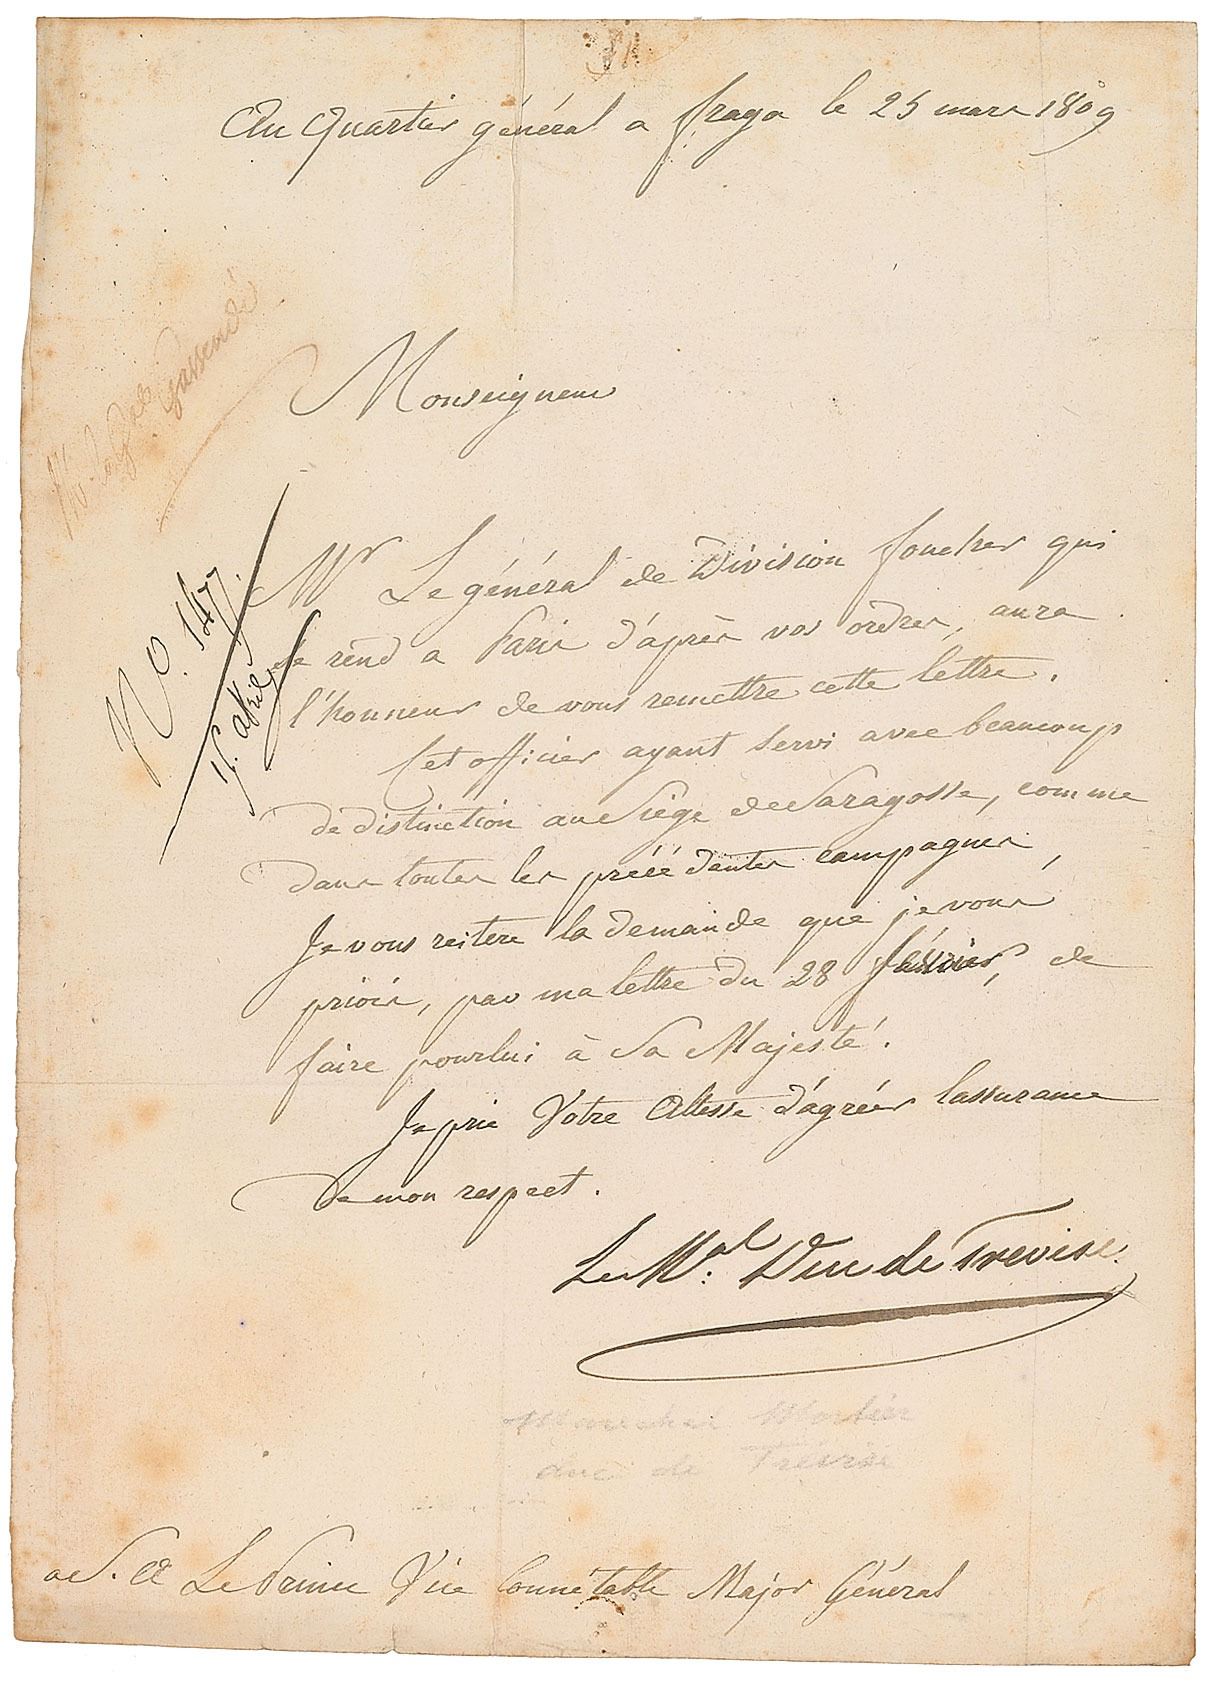 Au Quartier général a fraga le 25 mars 1809
Gassendi
Monseigneur
No. 1477.
15. avril
Mr Le général de Division foucher qui
se rend a Paris d'après vos ordres, aura
l'honneur de vous remettre cette lettre.
Cet officier ayant servi avec beaucoup
de distinction au Siége de Saragosse, comme
dans toutes les précédentes campagnes,
Je vous reitere la demande que je vous
priois, par ma lettre du 28 février, de
faire pour lui à Sa Majesté.
Je prie Votre Altesse d'agréer lassurance
de mon respect.
Le Mal: Duc de Trevise.
Marechal Mortier
duc de Trévise
a S. A Le Prince Vice Connétable Major Général